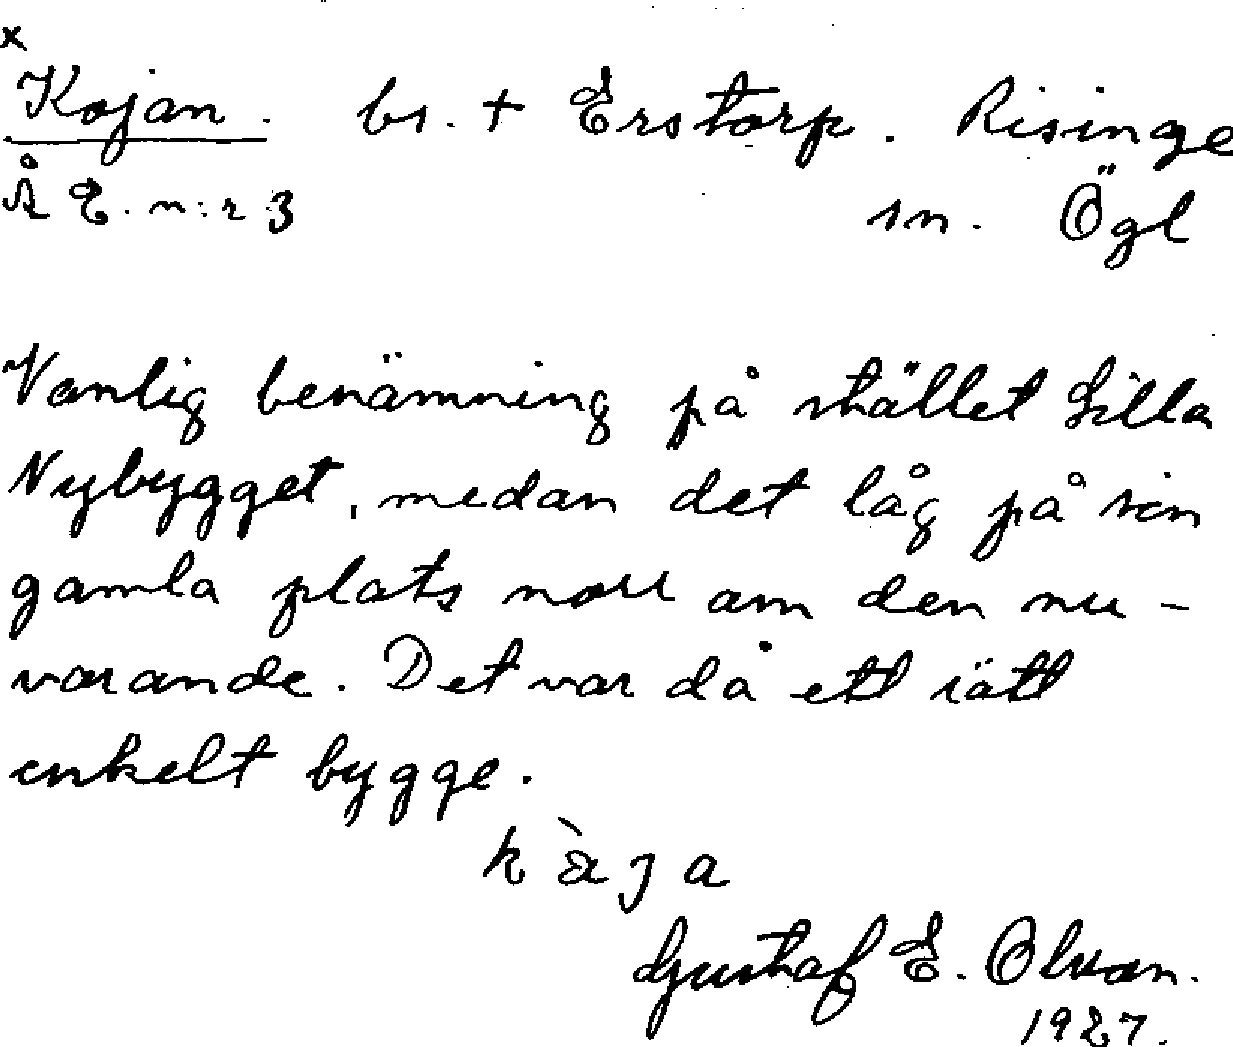 x
Kojan. bs. + Erstorp. Risinge
Å E. n:r 3 sn. Ögl
Vanlig benämning på stället Lilla
Nybygget, medan det låg på sin
gamla plats norr om den nu-
varande. Det var då ett rätt
enkelt bygge.
Gustaf E. Olsson.
1927.